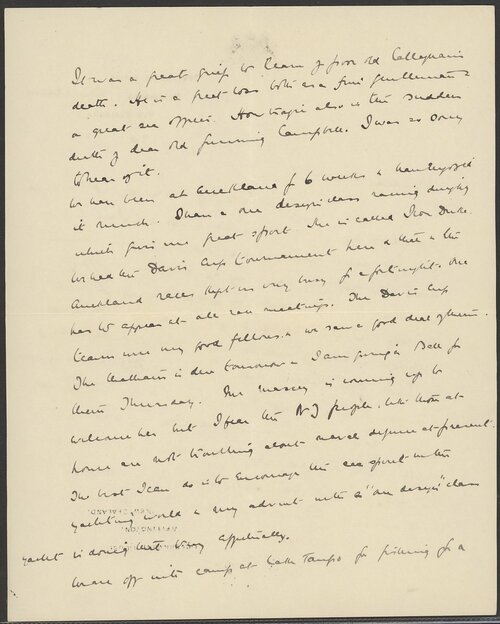 It was a great grief to learn of poor old Callaghan's
death. He is a great loss both as a fine gentleman &
a great sea officer. How tragic also is the sudden
death of dear old Campbell. I was so sorry
to hear of it.
We have been at Auckland for 6 weeks & have enjoyed
it much. I have a one design class racing dinghy
which gives me great sport. She is called Iron Duke
We had the Davis Cup tournament here & that & the
Auckland races kept us very busy for a fortnight. One
has to appear at all race meetings. The Davis Cup
teams were very good fellows & we saw a good deal of them.
The Chatham is due tomorrow & I am giving a Ball for
them Thursday. Mr Massey is coming up to
welcome her but I fear the NZ people, like those at
home are not troubling about naval defence at present.
The best I can do is to encourage the sea spirit in the
yachting world & my advent with a "one design" class
yacht is doing that very effectually.
We are off into camp at Lake Taupo for fishing for a
WELLINGTON,
NEW ZEALAND.